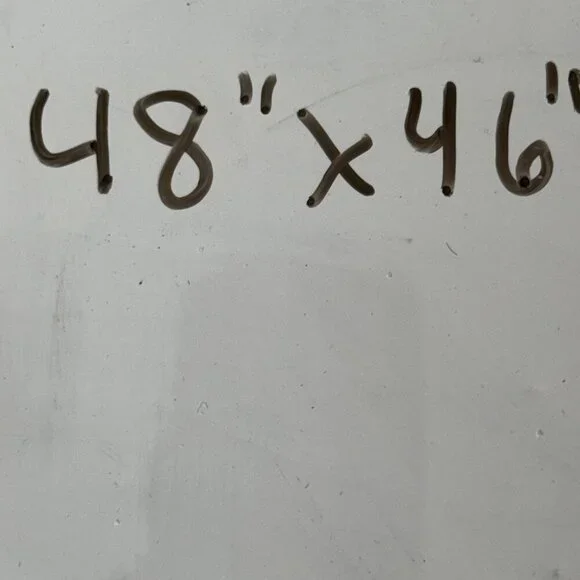 48" x 46"